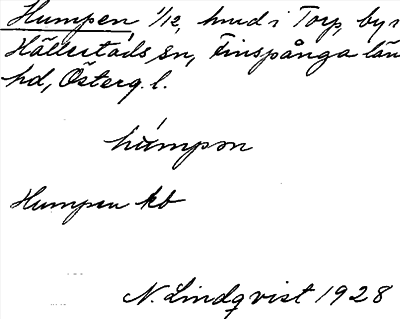 Humpen 1/12, hmd i Torp, by i
Hällestads sn, Finspånga län
hd, Österg. l.
húmpən
Humpen kb
N. Lindqvist 1928